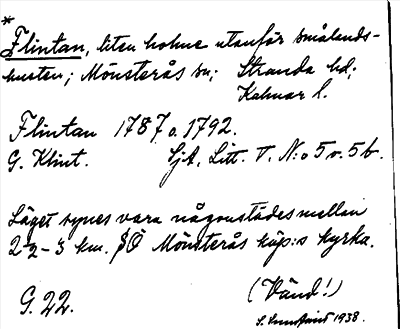 *
Flintan, liten holme utanför smålands-
kusten; Mönsterås sn; Stranda hd;
Kalmar l.
Flintan 1787 o. 1792.
G. Klint. Sjt. Litt. V. N:o 5 o. 5 b.
Läget synes vara någonstädes mellan
2 ½ - 3 km. SÖ Mönsterås köp:s kyrka.
G. 22. (Vänd!)
1938.